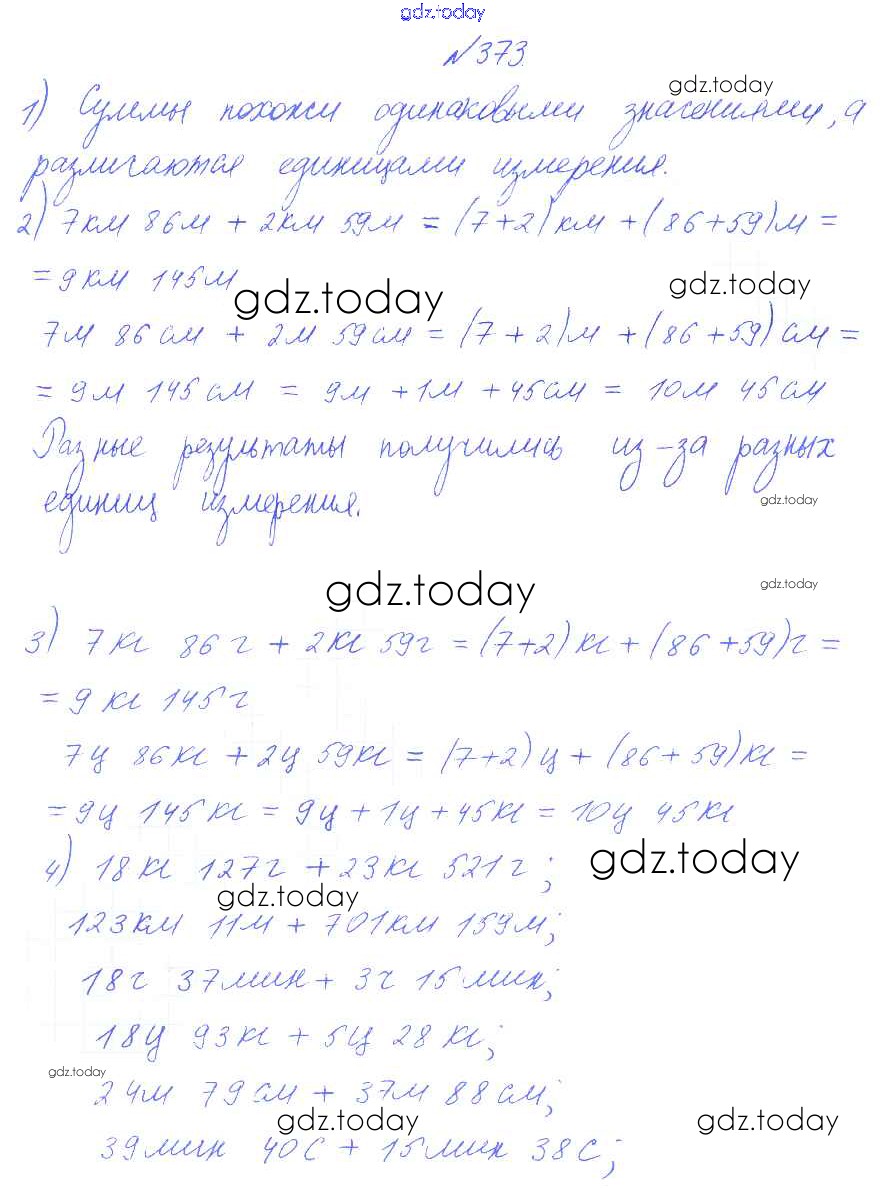 gdz.today
№373.
gdz.today
1) Суммы похожи одинаковыми значениями, а
различаются единицами измерения.
2) 7км 86м + 2км 59м = (7+2)км +(86+59)м =
= 9км 145м
gdz.today gdz.today
7м 86см + 2м 59см = (7+2)м +(86+59)см =
= 9м 145см = 9м +1м +45см = 10м 45см
Разные результаты получились из-за разных
единиц измерения.
gdz.today
gdz.today gdz.today
3) 7кг 86г + 2кг 59г = (7+2)кг + (86+59)г =
= 9кг 145г
7ц 86кг + 2ц 59кг = (7+2)ц + (86+59)кг =
= 9ц 145кг = 9ц + 1ц + 45кг = 10ц 45кг
gdz.today
4) 18кг 127г + 23кг 521г;
gdz.today
123км 11м + 701км 159м;
18ч 37мин + 3ч 15мин;
18ц 93кг + 5ц 28кг;
gdz.today
24м 79см + 37м 88см;
gdz.today gdz.today
39мин 40с + 15мин 38с;